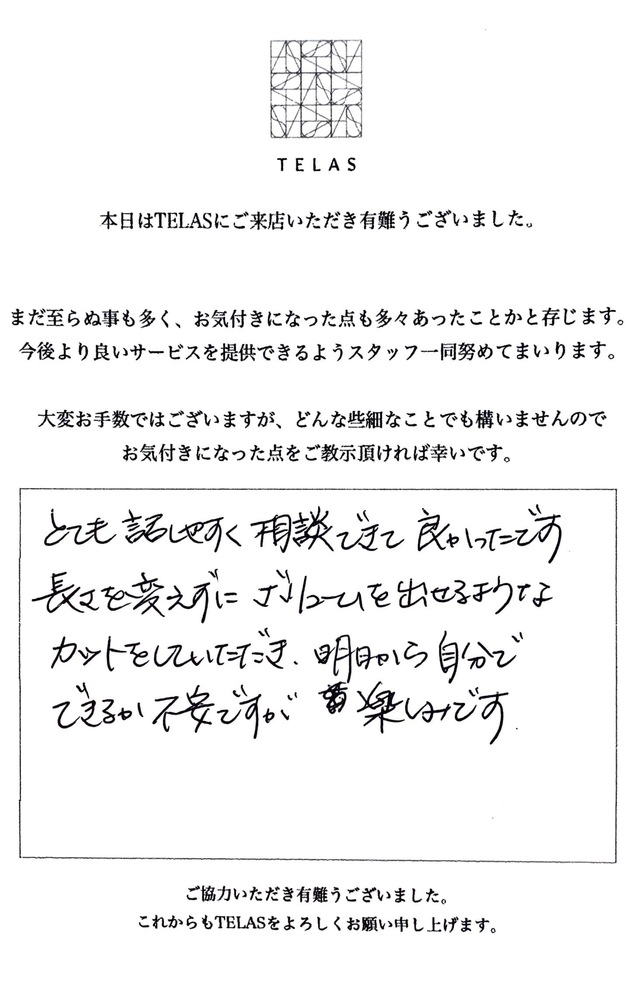 TELAS
本日はTELASにご来店いただき有難うございました。
まだ至らぬ事も多く、お気付きになった点も多々あったことかと存じます。
今後より良いサービスを提供できるようスタッフ一同努めてまいります。
大変お手数ではございますが、どんな些細なことでも構いませんので
お気付きになった点をご教示頂ければ幸いです。
とても話しやすく相談できて良かったです
長さを変えずにボリュームを出せるような
カットをしていただき、明日から自分で
できるか不安ですが楽しみです
ご協力いただき有難うございました。
これからもTELASをよろしくお願い申し上げます。